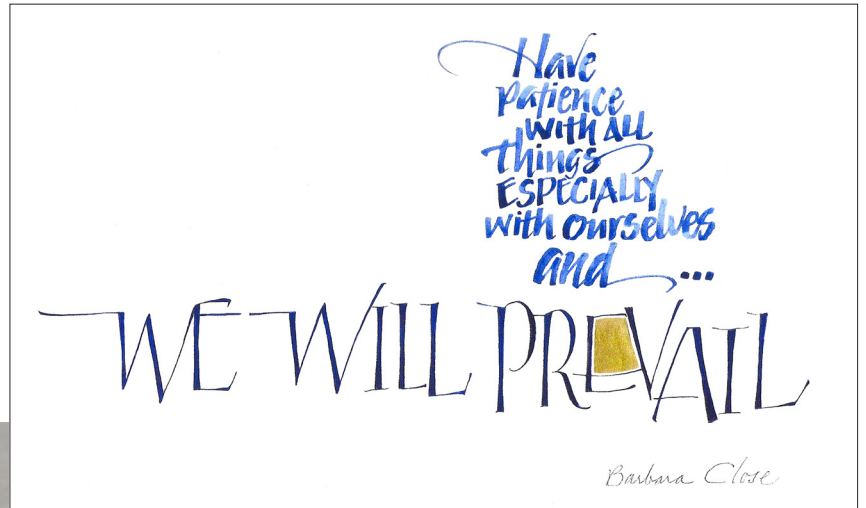 Have
patience
with ALL
things
ESPECIALLY
with ourselves
and...
WE WILL PREVAIL
Barbara Close